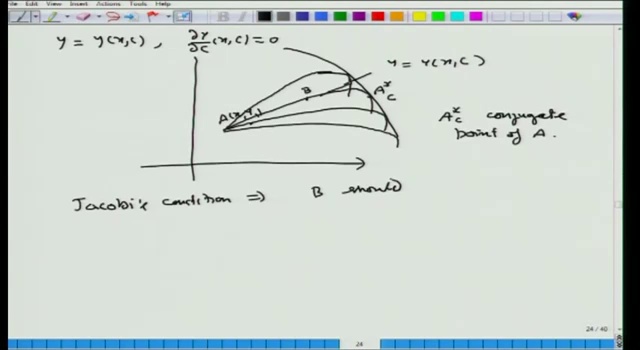 File View Insert Actions Tools Help
y = y(x,c) , ∂Y/∂C (x,c) = 0
y = Y(x,c)
B
A*c
A(x₁,y₁)
A*c conjugate
point of A.
Jacobi's condition ⇒ B should
24 / 40
24